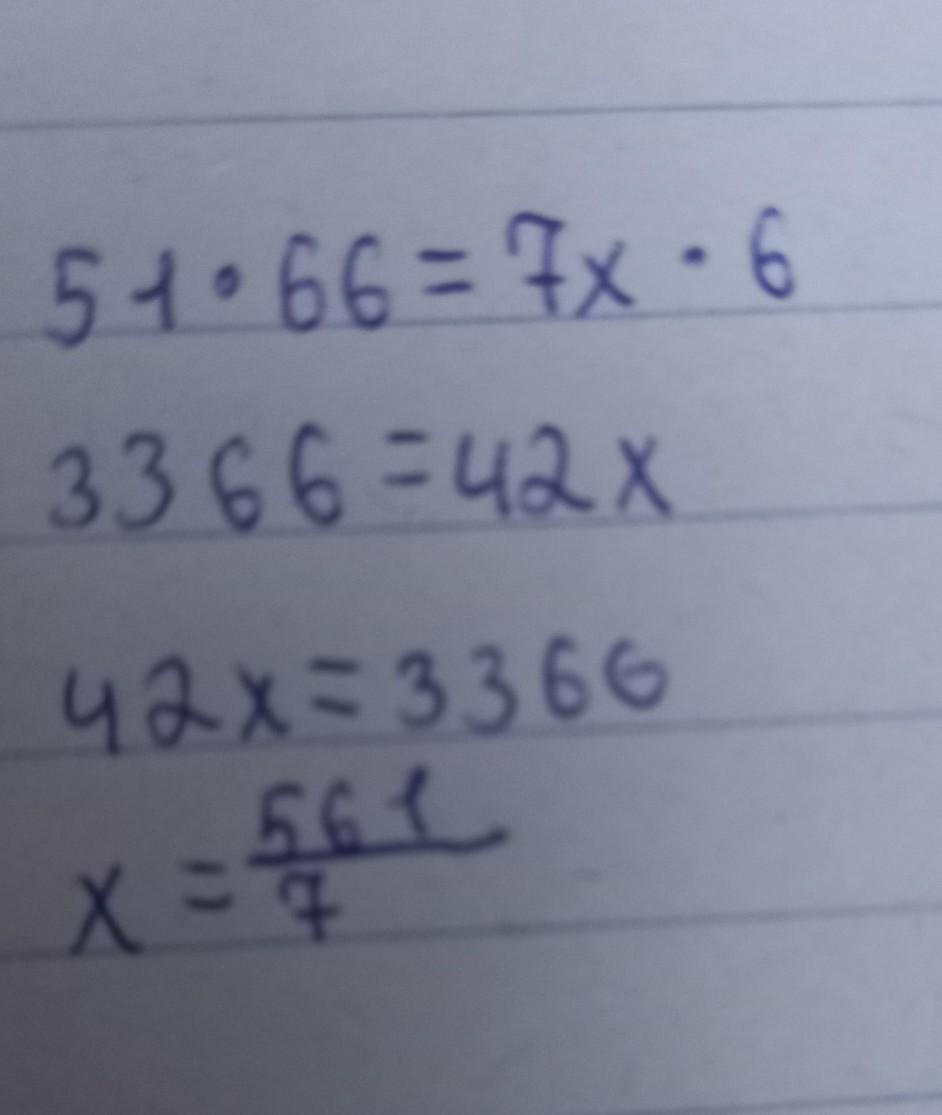 51 · 66 = 7x · 6
3366 = 42x
42x = 3366
x = 561/7